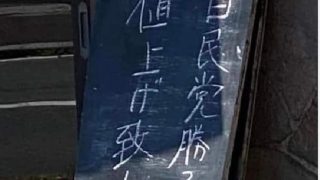 自民党勝
値上げ致